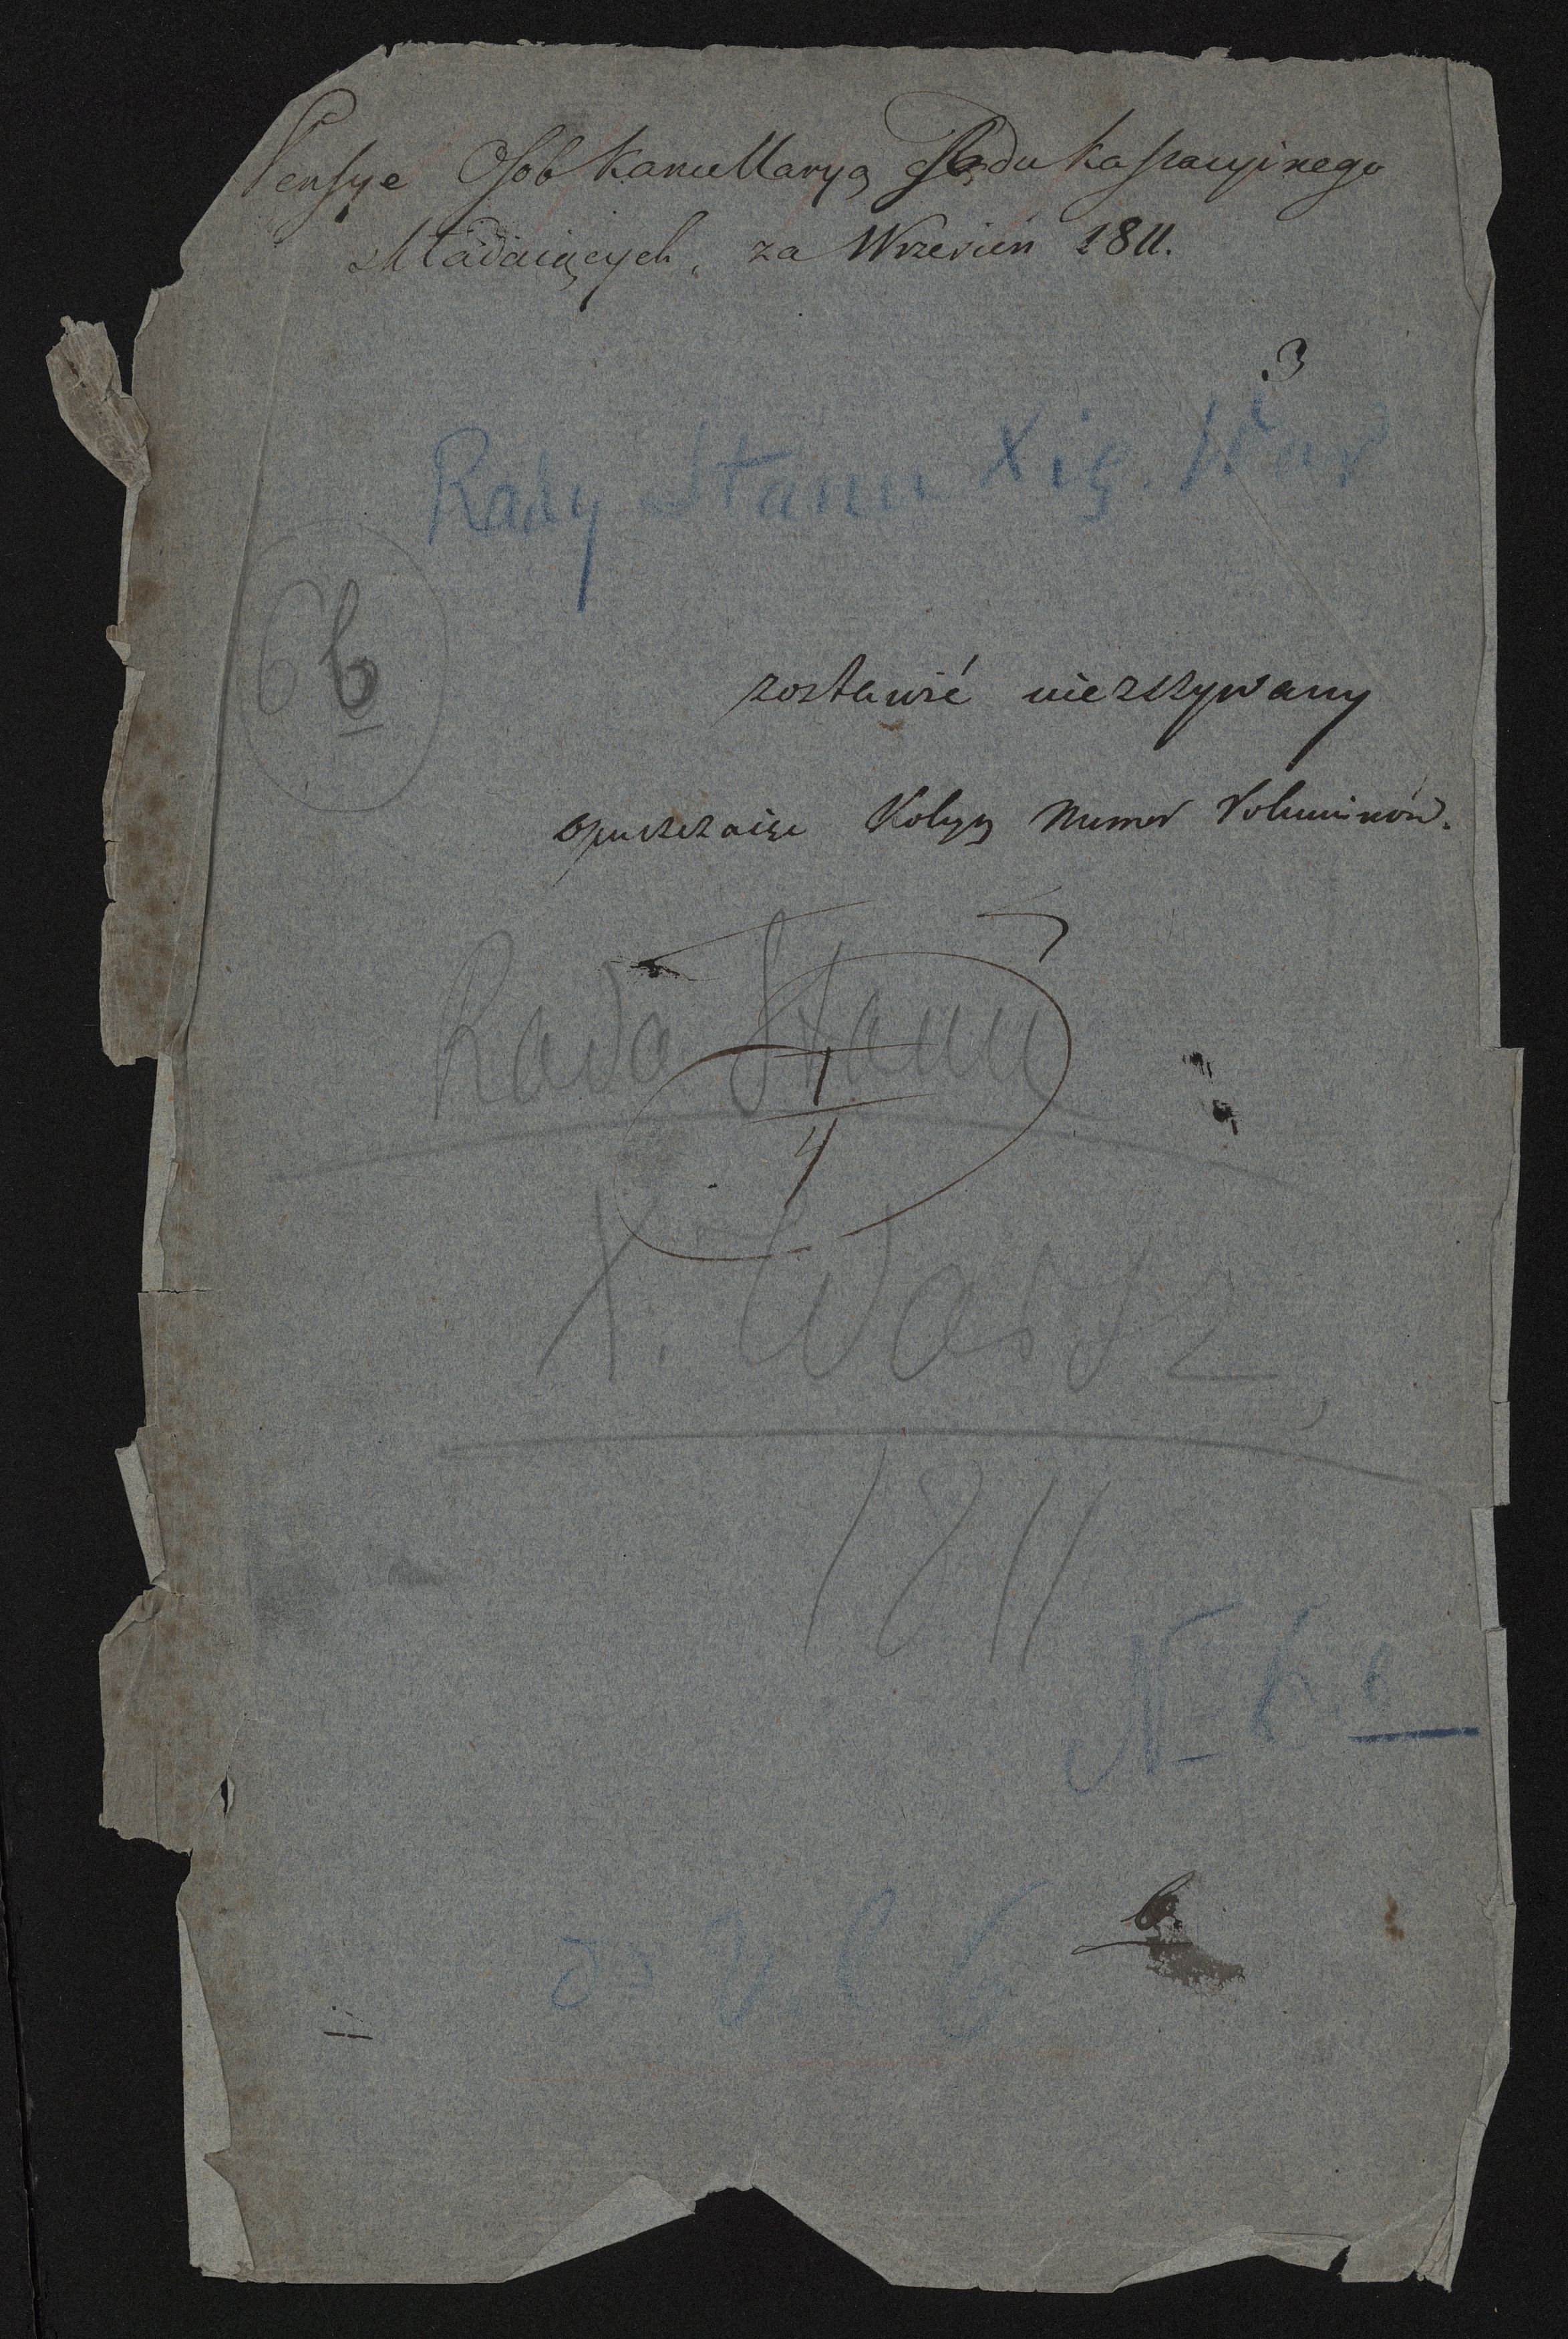 Pensye Osob Kancellaryą Sądu Kassacyinego
składaiących, za Wrzesień 1811.
3
Rady Stanu Xię. War
6 b
zostawić niezszywany
opuszczaiąc Koleyny Numer Voluminów.
Rada Stanu
1
4
X. Warsz
1811
N 6 b
b.